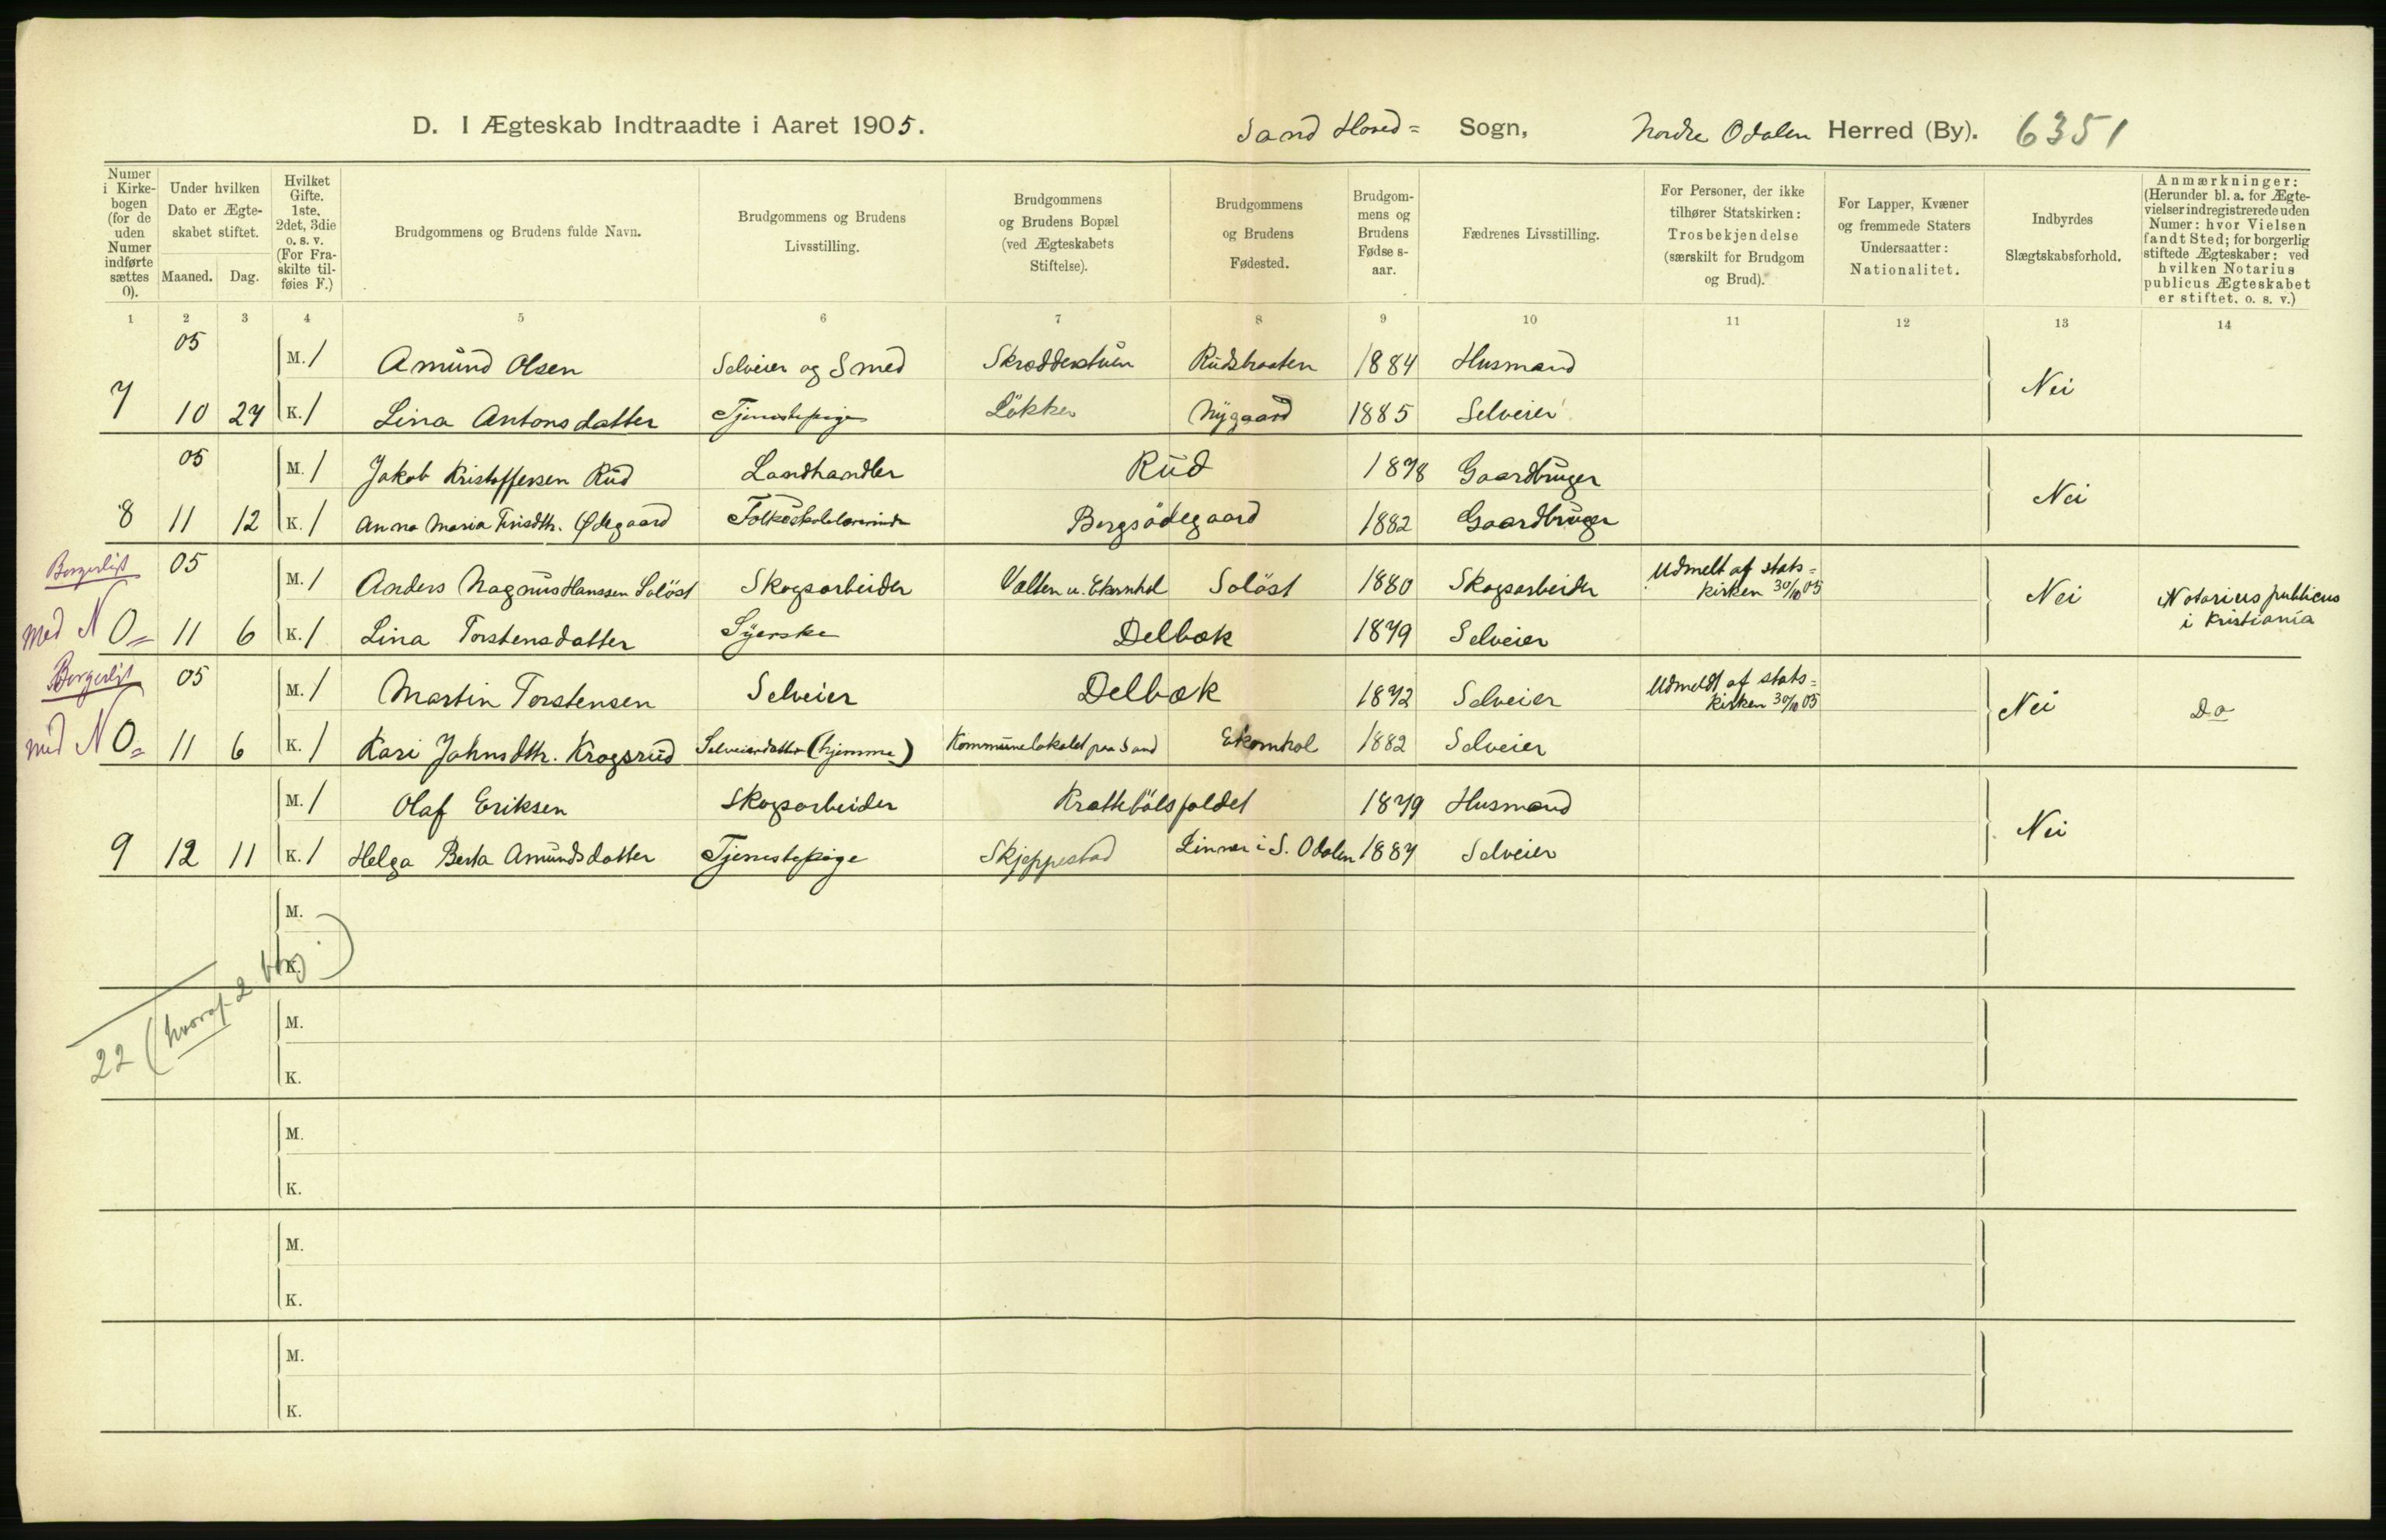 D. I Ægteskab Indtraadte i Aaret 1905. Sand Hoved= Sogn, Nordre Odalen Herred (By). 6351
Numer i Kirkebogen (for de uden Numer indførte sættes 0).
Under hvilken Dato er Ægteskabet stiftet.
Maaned. Dag.
Hvilket Gifte. 1ste, 2det, 3die o. s. v. (For Fraskilte tilføies F.)
Brudgommens og Brudens fulde Navn.
Brudgommens og Brudens Livsstilling.
Brudgommens og Brudens Bopæl (ved Ægteskabets Stiftelse).
Brudgommens og Brudens Fødested.
Brudgommens og Brudens Fødse s-aar.
Fædrenes Livsstilling.
For Personer, der ikke tilhører Statskirken: Trosbekjendelse (særskilt for Brudgom og Brud).
For Lapper, Kvæner og fremmede Staters Undersaatter: Nationalitet.
Indbyrdes Slægtskabsforhold.
Anmærkninger: (Herunder bl. a. for Ægtevielser indregistrerede uden Numer: hvor Vielsen fandt Sted; for borgerlig stiftede Ægteskaber: ved hvilken Notarius publicus Ægteskabet er stiftet. o. s. v.)
1 2 3 4 5 6 7 8 9 10 11 12 13 14
05 M. 1 Amund Olsen Selveier og Smed Skræddestuen Rudsbraaten 1884 Husmand
7 10 27 K. 1 Lina Antonsdatter Tjenestepige Løkken Nygaard 1885 Selveier Nei
05 M. 1 Jakob Kristoffersen Rud Landhandler Rud 1878 Gaardbruger
8 11 12 K. 1 Anna Maria Ødegaard Folkeskolelærerinde Bergsødegaard 1882 Gaardbruger Nei
Borgerligt 05 M. 1 Anders Magnus Hanssen Soløst Skogsarbeider Solöst 1880 Skogsarbeider Udmelt af stats= kirken 30/10 05
med N 0= 11 6 K. 1 Lina Torstensdatter Syerske Delbæk 1879 Selveier Nei Notarius publicus i Kristiania
Borgerligt 05 M. 1 Martin Torstensen Selveier Delbæk 1872 Selveier Udmeldt af stats= kirken 30/10 05
med N 0= 11 6 K. 1 Kari Johnsdtr. Krogsrud Selveierdatter (hjemme) Kommunelokalet paa Sand Ekornhol 1882 Selveier Nei Do
M. 1 Olaf Eriksen Skogsarbeider Krattebölsfaldet 1879 Husmand
9 12 11 K. 1 Helga Berta Amundsdatter Tjenestepige Skjeppestad Linnær i S. Odalen 1887 Selveier Nei
M.
K.
22 (hvoraf 2 b)
M.
K.
M.
K.
M.
K.
M.
K.